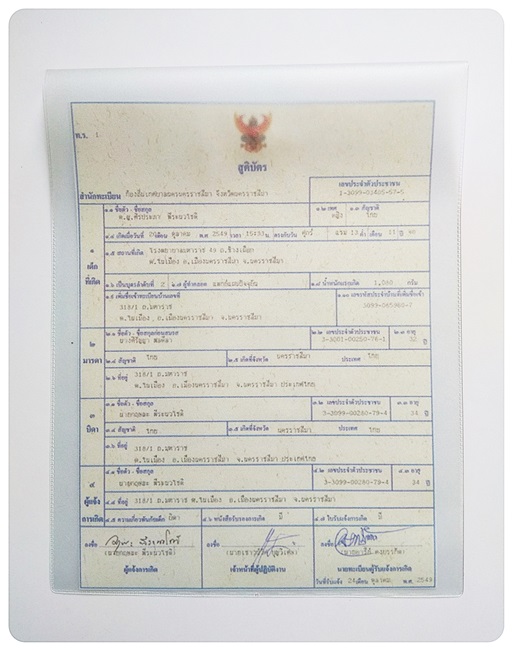 ท.ร. 1
สูติบัตร
สำนักทะเบียน ท้องถิ่นเทศบาลนครนครราชสีมา จังหวัดนครราชสีมา
เลขประจำตัวประชาชน
๑.๑ ชื่อตัว - ชื่อสกุล
๑.๒ เพศ หญิง
๑.๓ สัญชาติ ไทย
๑.๔ เกิดเมื่อวันที่ เดือน ตุลาคม พ.ศ. 2549 เวลา น. ตรงกับวัน ศุกร์ แรม ค่ำ เดือน 11 ปี จอ
๑
เด็ก
ที่เกิด
๑.๕ สถานที่เกิด โรงพยาบาลมหาราช 49 ถ.ช้างเผือก
ต.ในเมือง อ.เมืองนครราชสีมา จ.นครราชสีมา
๑.๖ เป็นบุตรลำดับที่ 2
๑.๗ ผู้ทำคลอด แพทย์แผนปัจจุบัน
๑.๘ น้ำหนักแรกเกิด กรัม
๑.๙ เพิ่มชื่อเข้าทะเบียนบ้านเลขที่
318/1 ถ.มหาราช
ต.ในเมือง อ.เมืองนครราชสีมา จ.นครราชสีมา
๑.๑๐ เลขรหัสประจำบ้านที่เพิ่มชื่อเข้า
๒
มารดา
๒.๑ ชื่อตัว - ชื่อสกุลก่อนสมรส
๒.๒ เลขประจำตัวประชาชน
๒.๓ อายุ
32 ปี
๒.๔ สัญชาติ ไทย
๒.๕ เกิดที่จังหวัด นครราชสีมา ประเทศ ไทย
๒.๖ ที่อยู่ 318/1 ถ.มหาราช
ต.ในเมือง อ.เมืองนครราชสีมา จ.นครราชสีมา ประเทศไทย
๓
บิดา
๓.๑ ชื่อตัว ชื่อสกุล
๓.๒ เลขประจำตัวประชาชน
3-3099-00280-79-4
๓.๓ อายุ
34 ปี
๓.๔ สัญชาติ ไทย
๓.๕ เกิดที่จังหวัด นครราชสีมา ประเทศ ไทย
๓.๖ ที่อยู่
318/1 ถ.มหาราช
ต.ในเมือง อ.เมืองนครราชสีมา จ.นครราชสีมา ประเทศไทย
๔
ผู้แจ้ง
การเกิด
๔.๑ ชื่อตัว - ชื่อสกุล
๔.๒ เลขประจำตัวประชาชน
3-3099-00280-79-4
๔.๓ อายุ
34 ปี
๔.๔ ที่อยู่ 318/1 ถ.มหาราช ต.ในเมือง อ.เมืองนครราชสีมา จ.นครราชสีมา
๔.๕ ความเกี่ยวพันกับเด็ก บิดา
๔.๖ หนังสือรับรองการเกิด มี
๔.๗ ใบรับแจ้งการเกิด มี
ลงชื่อ
ลงชื่อ
ลงชื่อ
ผู้แจ้งการเกิด
เจ้าหน้าที่ผู้ปฏิบัติงาน
นายทะเบียนผู้รับแจ้งการเกิด
วันที่รับแจ้ง 24 เดือน ตุลาคม พ.ศ. 2549